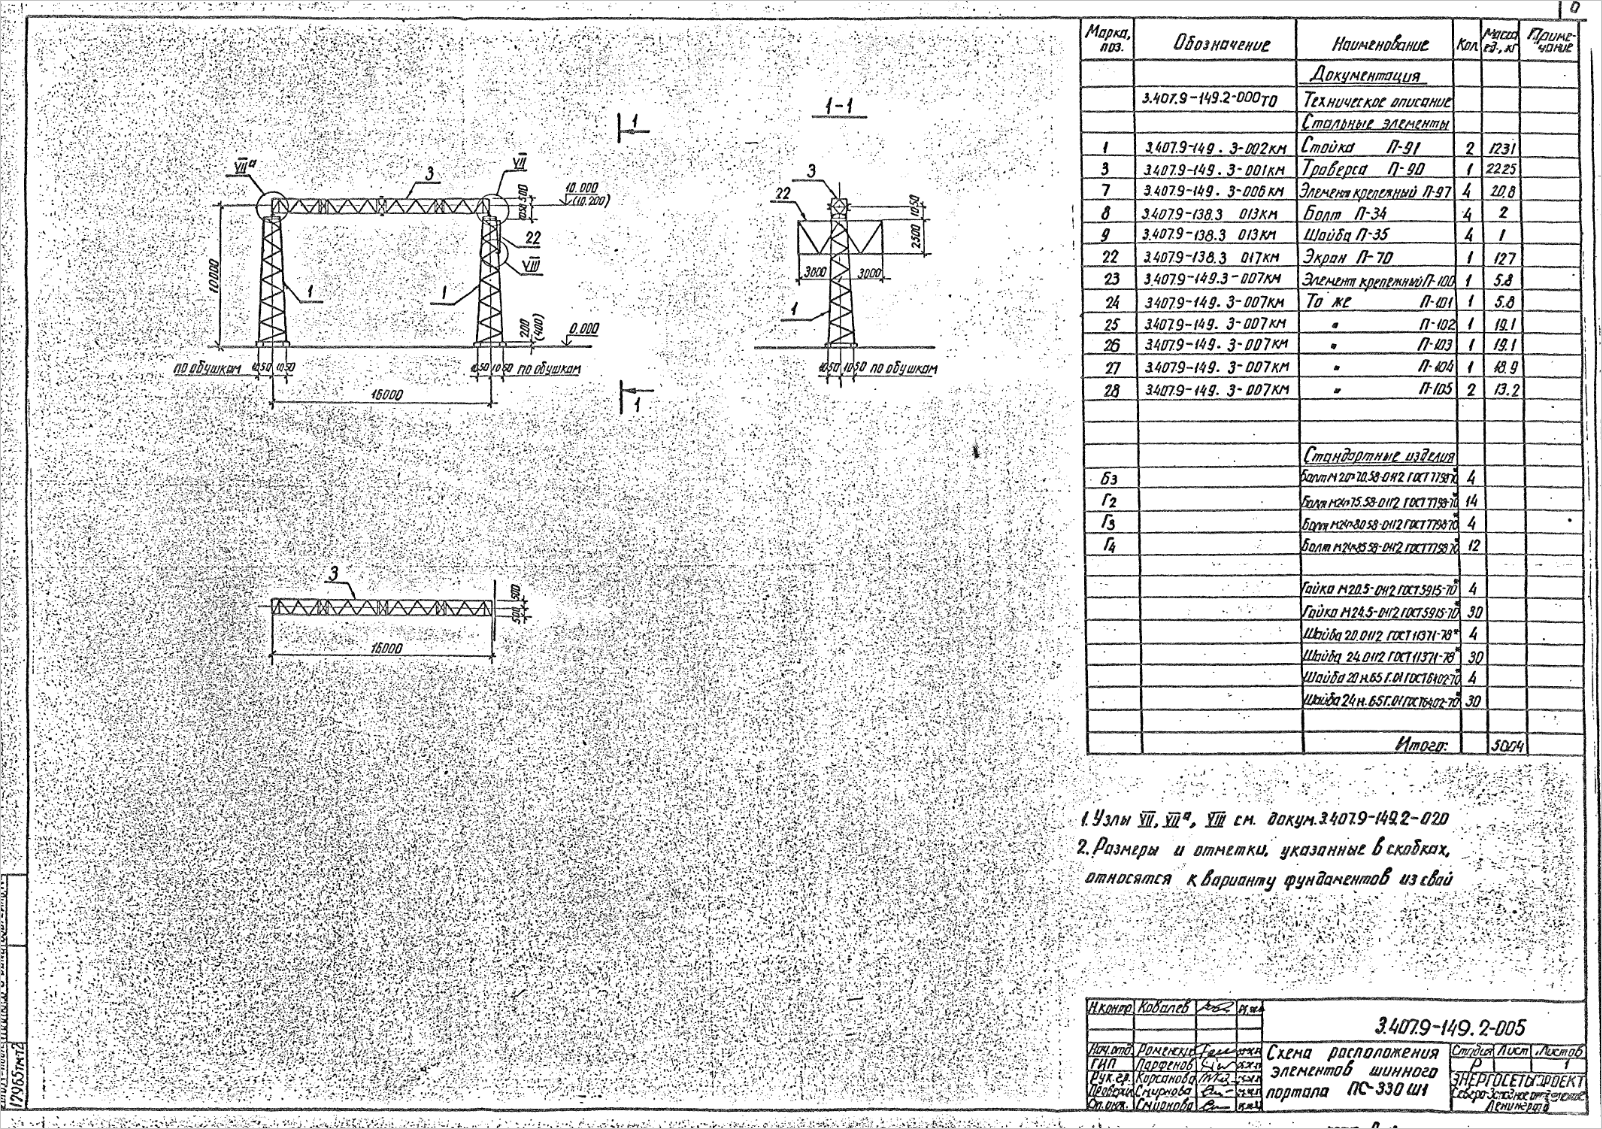 1
1-1
VIIа
VII
3
10.000
(10.200)
1050 500
22
VIII
10000
1
1
200
(400)
0.000
по обушкам 1050 1050
1050 1050 по обушкам
16000
1
3
22
1050
2500
3000 3000
1
1050 1050 по обушкам
3
500
500
16000
Марка, поз. Обозначение Наименование Кол. Масса ед., кг Приме-чание
Документация
3.407.9-149.2-000ТО Техническое описание
Стальные элементы
1 3.407.9-149. 3-002КМ Стойка П-91 2 1231
3 3.407.9-149. 3-001КМ Траверса П-90 1 2225
7 3.407.9-149. 3-006КМ Элемент крепежный П-97 4 20.8
8 3.407.9-138.3 013КМ Болт П-34 4 2
9 3.407.9-138.3 013КМ Шайба П-35 4 1
22 3.407.9-138.3 017КМ Экран П-70 1 127
23 3.407.9-149.3-007КМ Элемент крепежный П-100 1 5.8
24 3.407.9-149. 3-007КМ То же П-101 1 5.8
25 3.407.9-149. 3-007КМ " П-102 1 19.1
26 3.407.9-149. 3-007КМ " П-103 1 19.1
27 3.407.9-149. 3-007КМ " П-104 1 18.9
28 3.407.9-149. 3-007КМ " П-105 2 13.2
Стандартные изделия
Б3 Болт М20×70.58-0112 ГОСТ 7798-70* 4
Г2 Болт М24×75.58-0112 ГОСТ 7798-70* 14
Г3 Болт М24×80.58-0112 ГОСТ 7798-70* 4
Г4 Болт М24×85.58-0112 ГОСТ 7798-70* 12
Гайка М20.5-0112 ГОСТ 5915-70* 4
Гайка М24.5-0112 ГОСТ 5915-70* 30
Шайба 20.0112 ГОСТ 11371-78* 4
Шайба 24.0112 ГОСТ 11371-78* 30
Шайба 20 н.65 Г.01 ГОСТ 6402-70* 4
Шайба 24 н.65 Г.01 ГОСТ 6402-70* 30
Итого: 5004
1. Узлы VII, VIIа, VIII см. докум. 3.407.9-149.2-020
2. Размеры и отметки, указанные в скобках,
относятся к варианту фундаментов из свай
Н.контр Ковалев
3.407.9-149. 2-005
Нач.отд. Роменский
ГИП Парфенов
Рук.гр. Корсанова
Проверил Смирнова
Смирнова
Схема расположения
элементов шинного
портала ПС-330 Ш1
Стадия Лист Листов
Р 1
ЭНЕРГОСЕТЬПРОЕКТ
Северо-Западное отделение
Ленинград
12965тм-т2